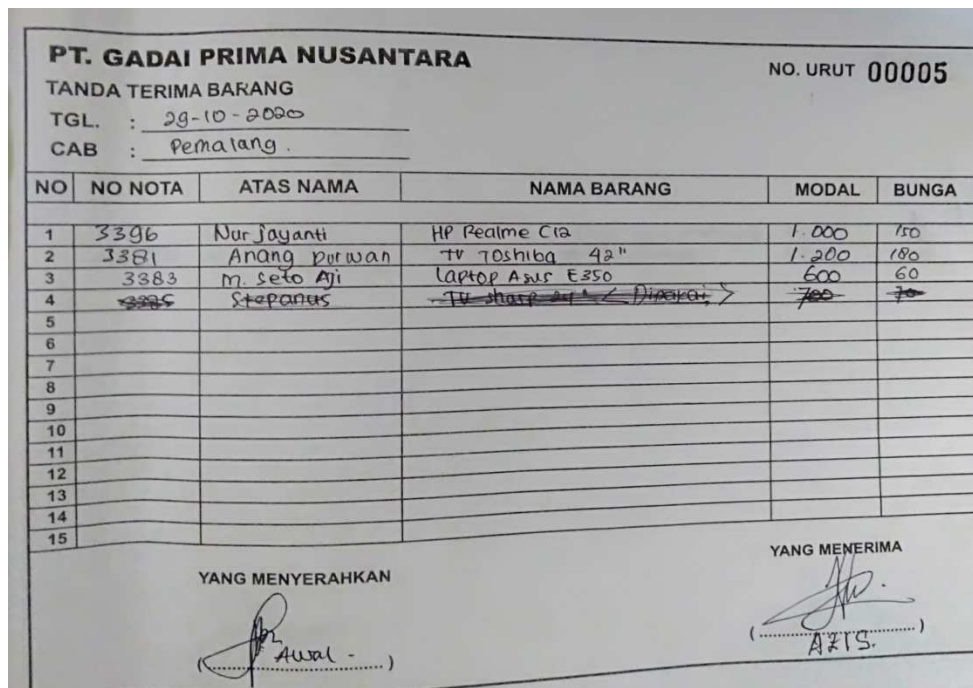 PT. GADAI PRIMA NUSANTARA
NO. URUT 00005
TANDA TERIMA BARANG
TGL. : 29-10-2020
CAB : Pemalang.
NO NO NOTA ATAS NAMA NAMA BARANG MODAL BUNGA
1 3396 Nur jayanti HP Realme C12 1.000 150
2 3381 Anang purwan TV Toshiba 42" 1.200 180
3 3383 M. Seto Aji Laptop Asus E350 600 60
4 3385 Stepanus TV sharp 24" < Dipakai > 700 70
5
6
7
8
9
10
11
12
13
14
15
YANG MENYERAHKAN YANG MENERIMA
(Awal -) (AZIS.)